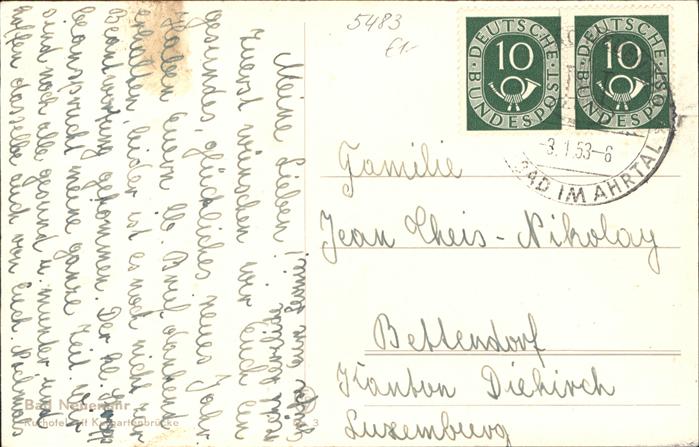 5483
€1.-
DEUTSCHE BUNDESPOST 10
DEUTSCHE BUNDESPOST 10
-3.1.53-6
BAD IM AHRTAL
Familie
Jean Theis-Nikolay
Bettendorf
Kanton Diekirch
Luxemburg
Meine Lieben!
Zuerst wünschen wir Euch ein
gesundes, glückliches neues Jahr.
Haben Euern lb. Brief dankend
erhalten, leider ist es noch nicht zur
Beantwortung gekommen. Der kl.
beansprucht meine ganze Zeit. Wir
sind noch alle gesund u. munter und
hoffen dasselbe auch von Euch.
Bad Neuenahr
Kurhotel mit Kurgartenbrücke
3